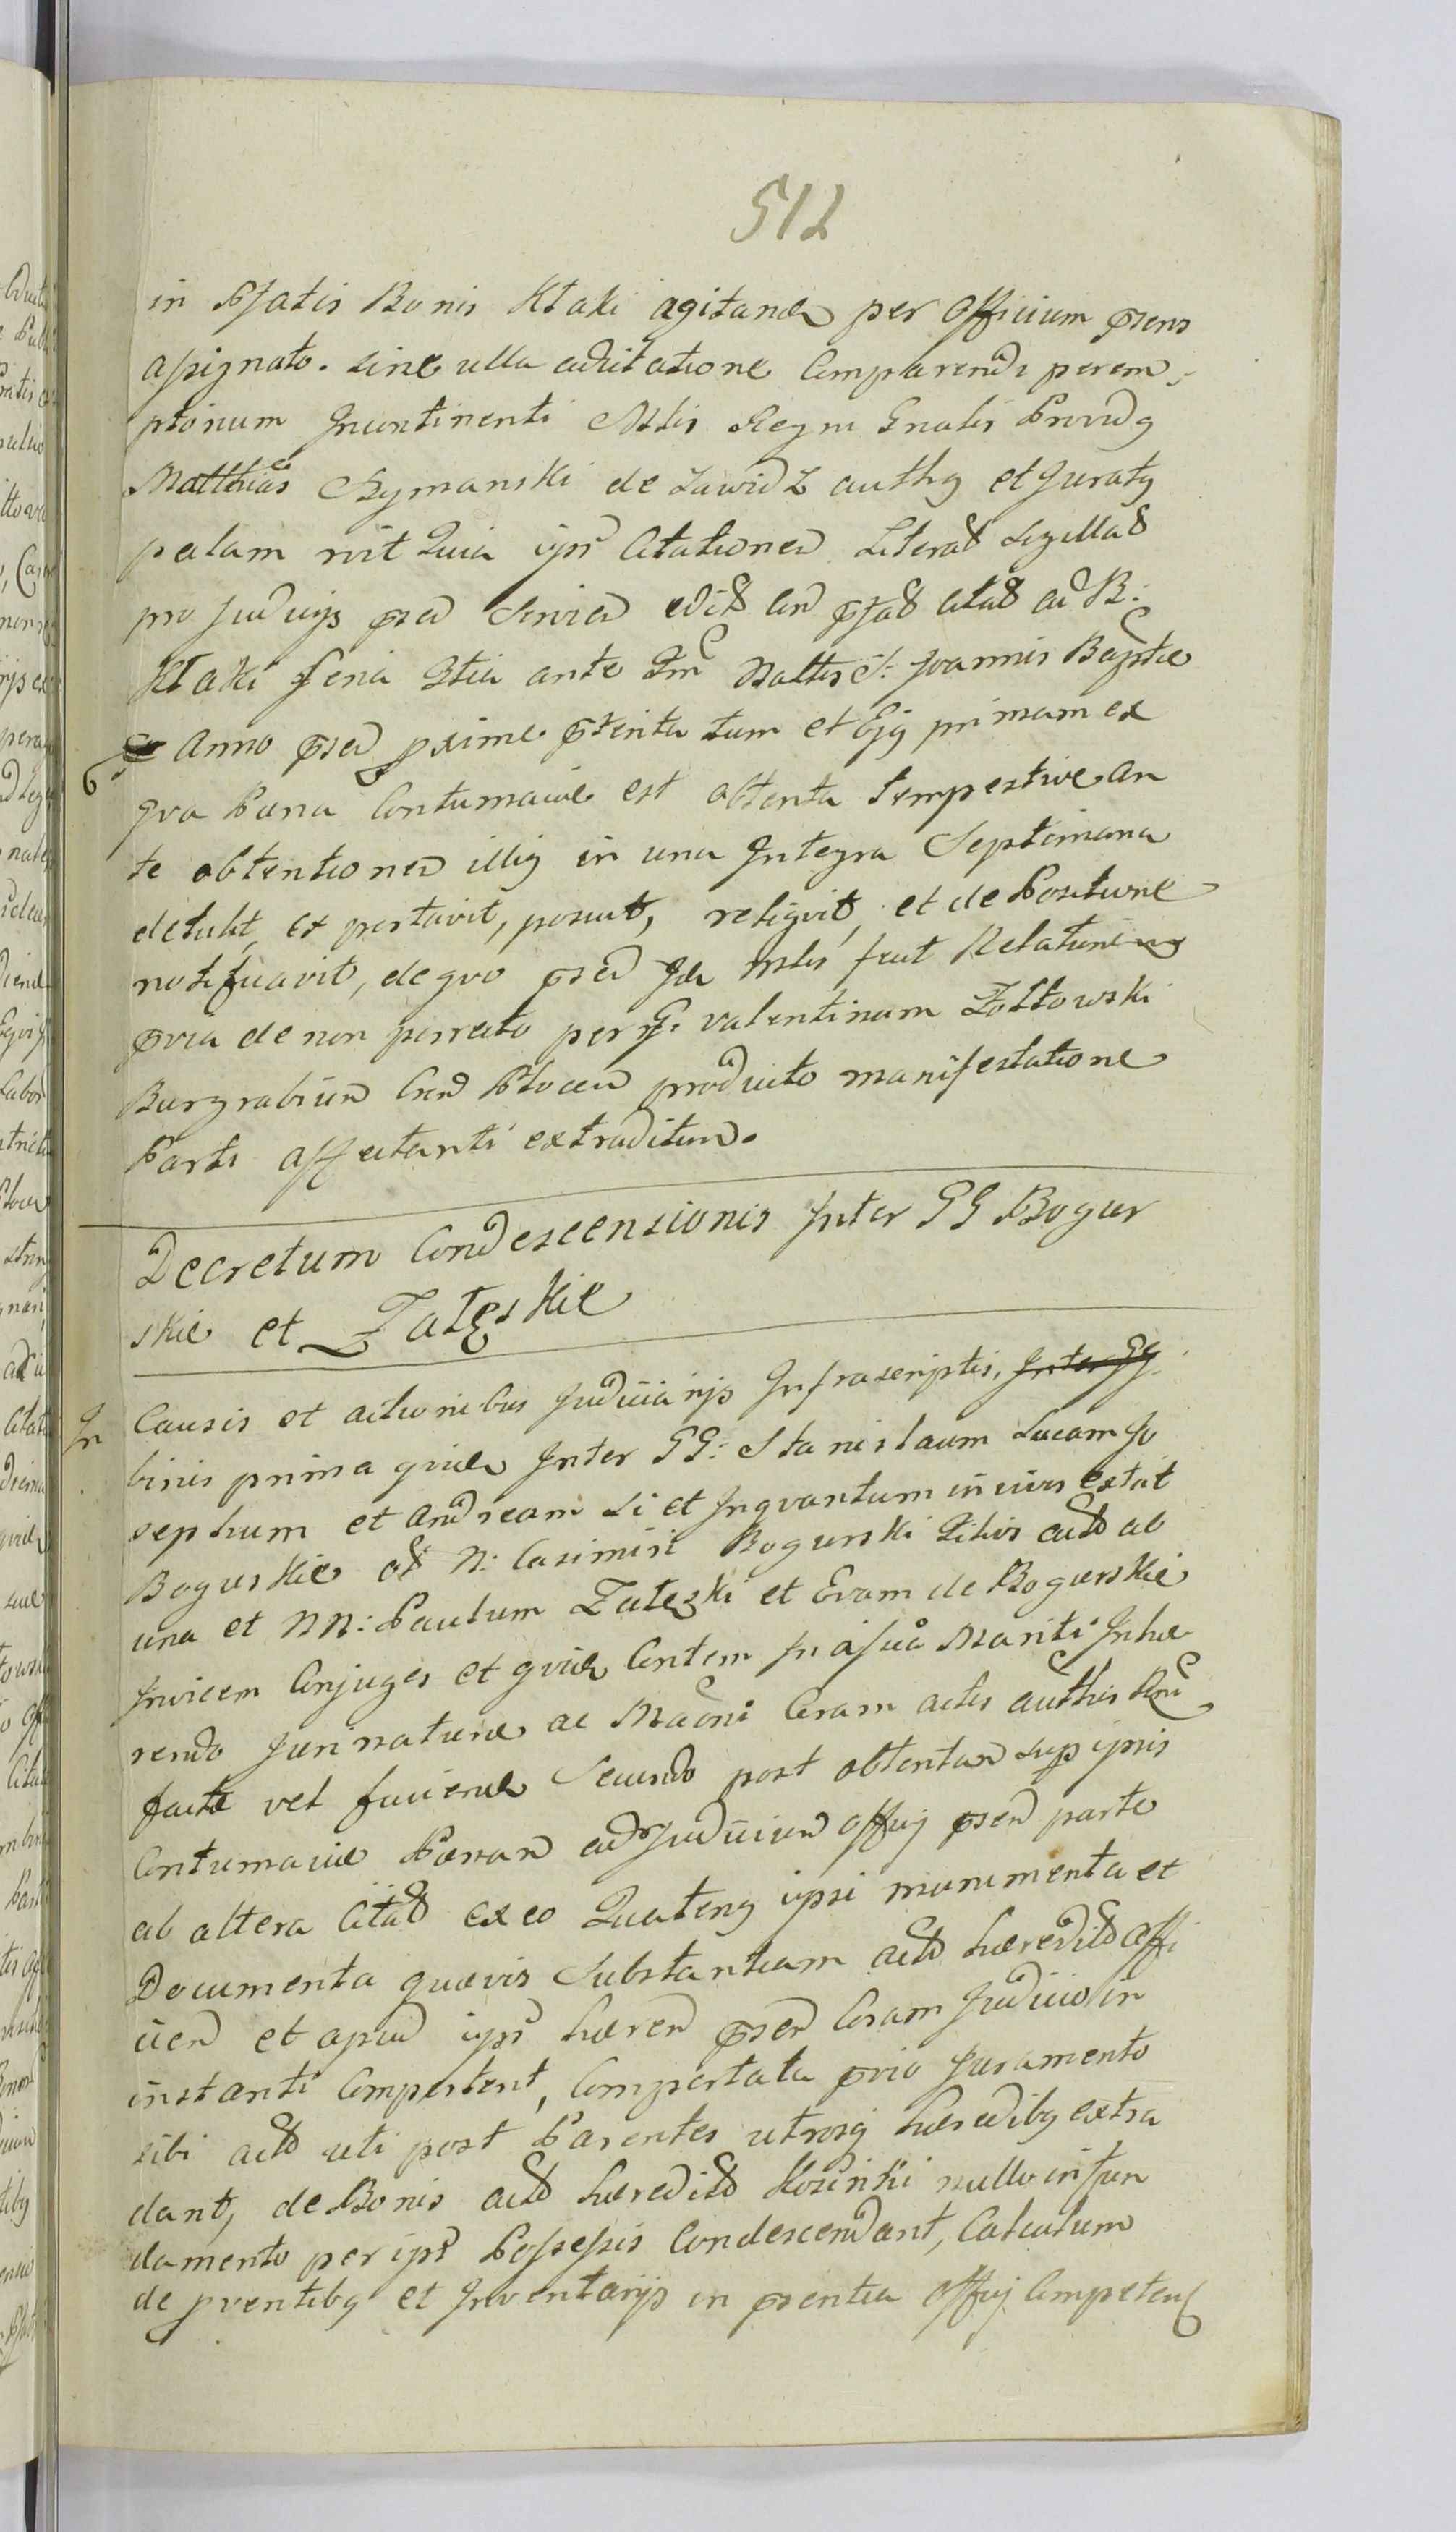 512
in Pfatis Bonis Ktaki agitand per Officium pñens
assignato. sine ulla aditatione Comparendi perem
ptorium Incontinenti Mtlis Regni Gnalis Provid9
Matthias Szymanski de Zawidz auth9 et Jurat9
palam rñt Quia ips Citationem Literað Sigillað
pro Judicijs pñed Servied edið Cñd pfað citað ad B.
Ktaki feria 3tia ante Fm Naltis S: Joannis Baptæ
Anno pñed pxime ptenta tum et Ej9 primam ex
qva Pæna Contumaciæ est obtenta tempestive an
te obtentioned illi9 in una Integra Septimana
detulit, ex portavit, posuit, reliqvit, et de Positione
notificavit, de qvo pñed Jde Mtlis fecit Relatione
pvia de non perreato per G. Valentinum Zołtowski
Burgrabium Cñd Plocen producto manifestatione
Parti affectanti extraditum.
Decretum Condescensionis Inter GG Bogur
skie et Załęskie
In Causis et actionibus Judiciarijs Infrascriptis, Inter GG.
binis prima qvide Inter GG: Stanislaum Lucam Jo
sephum et Andream Si et Inqvantum in vivis extat
Boguskie oð N: Casimiri Bogurski Filios actð ab
una et NN: Paulum Załęzki et Evam de Bogurskie
Invicem Conjuges et qvide Contem In assña Mariti Inhæ
rendo Juri naturæ ac Madni Coram actis authis Rñi
factæ vel faciend Secundo post obtentam sup ipsis
Contumaciæ Pænam ad Judicium Officij pñend parte
ab altera Citað ex eo Quaten9 ipsi munimenta et
Documenta quævis Substantiam actð hæreditð affi
cien et apud ips hæren pñen Coram Judicio in
instanti Comportent, Comportata pvio Juramento
sibi actð uti post Parentes utrosq hæredib9 extra
dant, de Bonis actð hæreditð Kosinki nullo in fun
damento per ips Possessis Condescendant, Calculum
de pventib9 et Inventarijs in pñentia Officij Competen